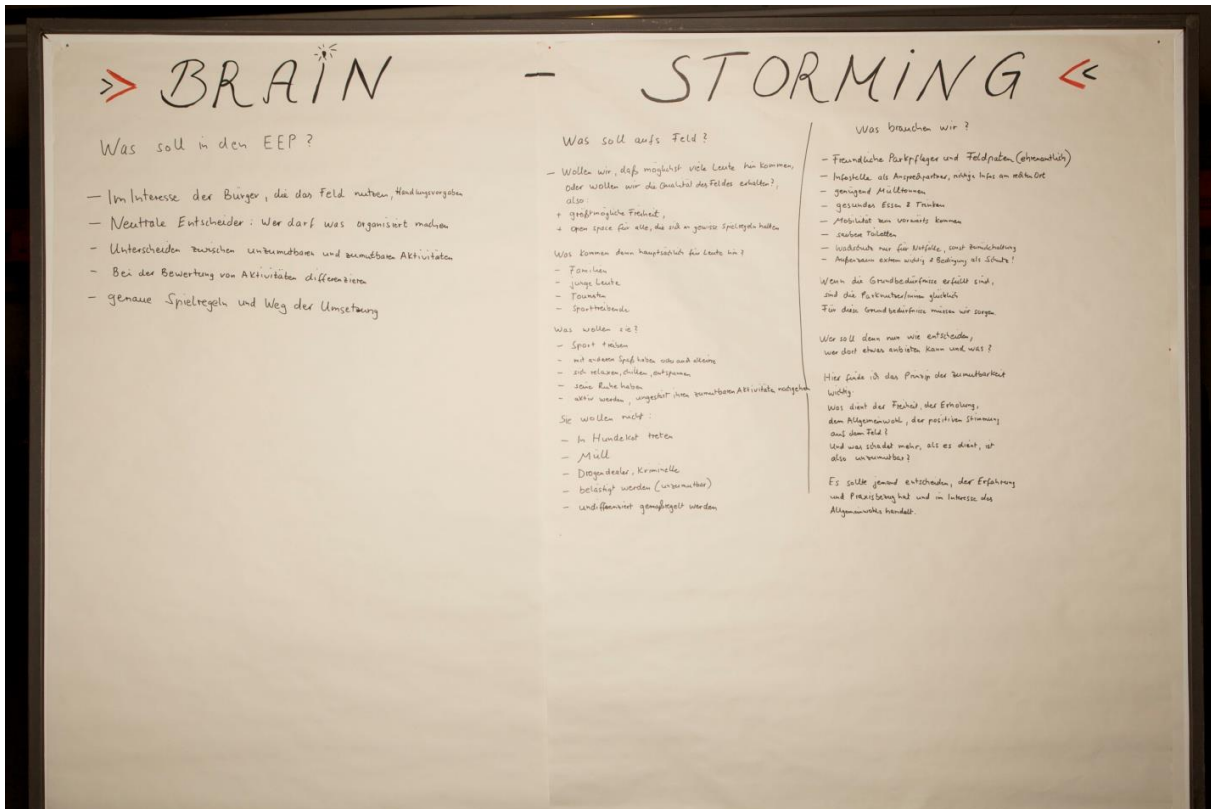 >> BRAiN - STORMiNG <<
Was soll in den EEP ?
- Im Interesse der Bürger, die das Feld nutzen, Handlungsvorgaben
- Neutrale Entscheider : Wer darf was organisiert machen
- Unterscheiden zwischen unzumutbaren und zumutbaren Aktivitäten
- Bei der Bewertung von Aktivitäten differenzieren
- genaue Spielregeln und Weg der Umsetzung
Was soll aufs Feld ?
- Wollen wir, daß möglichst viele Leute hin kommen,
oder wollen wir die Qualität des Feldes erhalten?,
also :
+ größtmögliche Freiheit,
+ open space für alle, die sich an gewisse Spielregeln halten
Was kommen denn hauptsächlich für Leute hin ?
- Familien
- junge Leute
- Touristen
- Sporttreibende
Was wollen sie ?
- Sport treiben
- mit anderen Spaß haben oder auch alleine
- sich relaxen, chillen, entspannen
- seine Ruhe haben
- aktiv werden, ungestört ihren zumutbaren Aktivitäten nachgehen
Sie wollen nicht :
- In Hundekot treten
- Müll
- Drogendealer, Kriminelle
- belästigt werden (unzumutbar)
- undifferenziert gemaßregelt werden
Was brauchen wir ?
- Freundliche Parkpfleger und Feldpaten (ehrenamtlich)
- Infostelle als Ansprechpartner, nötige Infos am rechten Ort
- genügend Mülltonnen
- gesundes Essen & Trinken
- Mobilität zum vorwärts kommen
- saubere Toiletten
- Wachschutz nur für Notfälle, sonst Zurückhaltung
- Außenzaun extrem wichtig & Bedingung als Schutz !
Wenn die Grundbedürfnisse erfüllt sind,
sind die ParknutzerInnen glücklich
Für diese Grundbedürfnisse müssen wir sorgen.
Wer soll denn nun wie entscheiden,
wer dort etwas anbieten kann und was ?
Hier finde ich das Prinzip der Zumutbarkeit
wichtig.
Was dient der Freiheit, der Erholung,
dem Allgemeinwohl, der positiven Stimmung
auf dem Feld ?
Und was schadet mehr, als es dient, ist
also unzumutbar ?
Es sollte jemand entscheiden, der Erfahrung
und Praxisbezug hat und im Interesse des
Allgemeinwohls handelt.